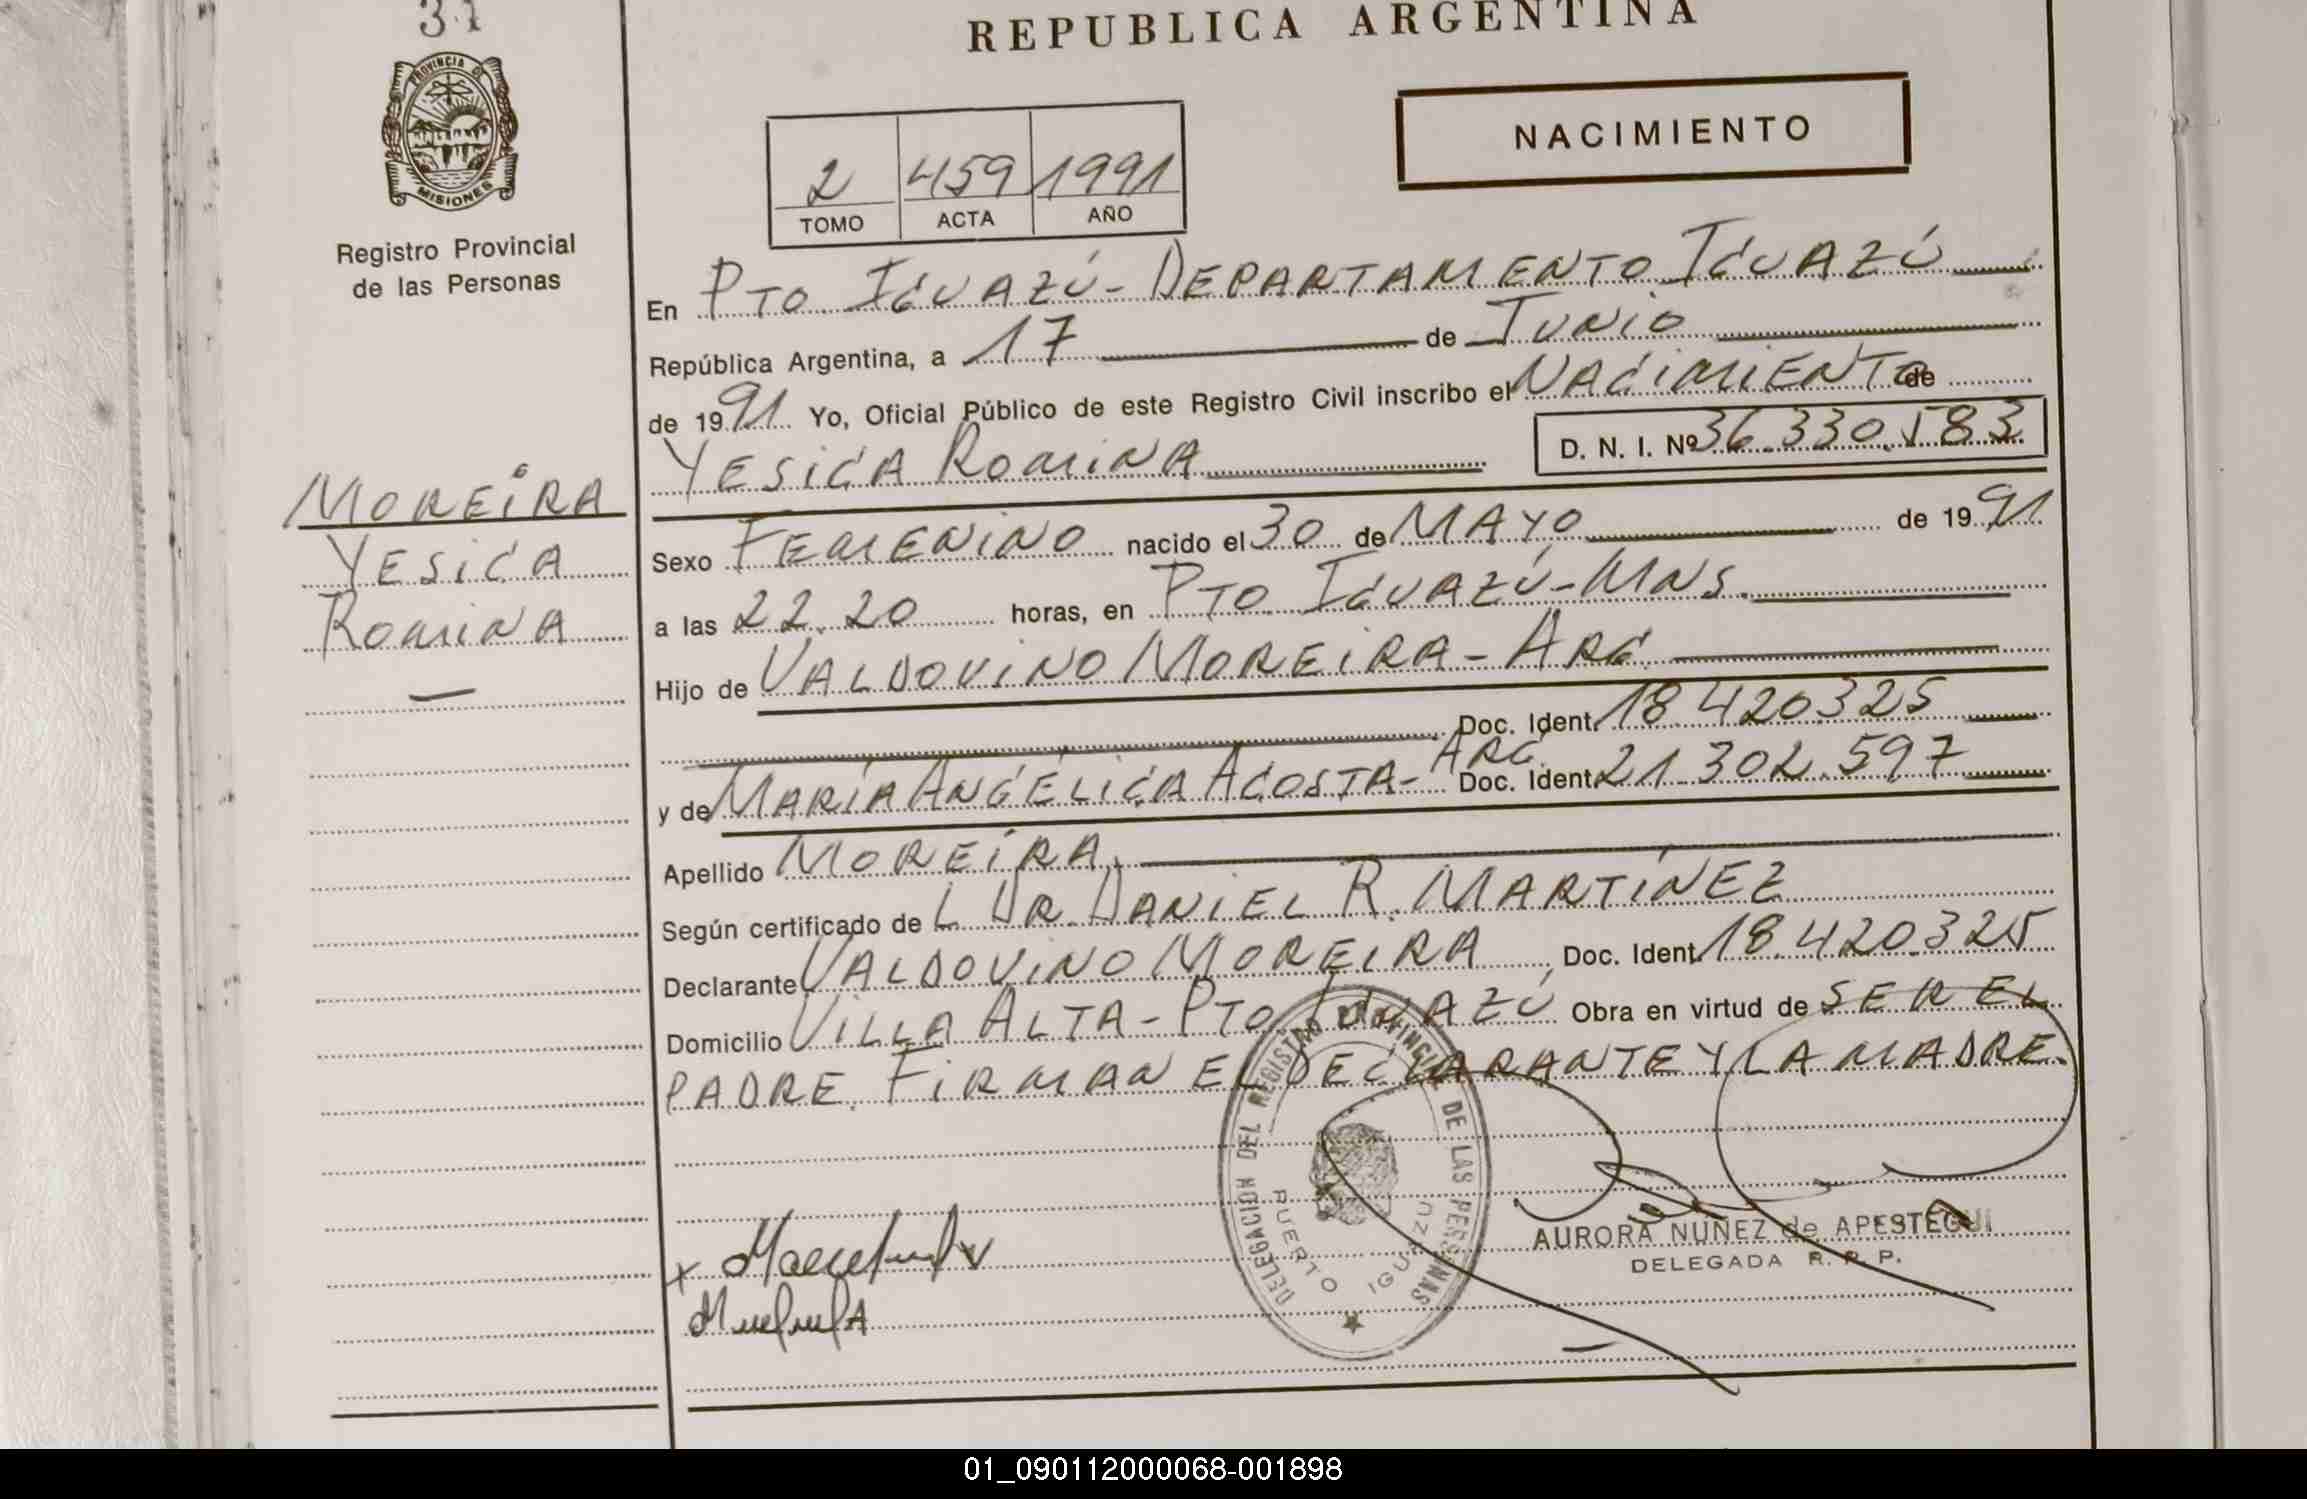 31
REPUBLICA ARGENTINA
PROVINCIA DE
MISIONES
Registro Provincial
de las Personas
NACIMIENTO
2 459 1991
TOMO ACTA AÑO
En PTO IGUAZÚ - DEPARTAMENTO IGUAZÚ
República Argentina, a 17 de JUNIO
de 1991 Yo, Oficial Público de este Registro Civil inscribo el NACIMIENTO de
YESICA ROMINA D. N. I. Nº 36.330.583
MOREIRA
YESICA
ROMINA
Sexo FEMENINO nacido el 30 de MAYO de 1991
a las 22.20 horas, en PTO IGUAZÚ - MNS.
Hijo de VALDOVINO MOREIRA - ARG.
Doc. Ident. 18.420.325
y de MARÍA ANGÉLICA ACOSTA - ARG. Doc. Ident. 21.302.597
Apellido MOREIRA
Según certificado de L DR. DANIEL R. MARTÍNEZ
Declarante VALDOVINO MOREIRA Doc. Ident. 18.420.325
Domicilio VILLA ALTA - PTO IGUAZÚ Obra en virtud de SER EL
PADRE. FIRMAN EL DECLARANTE Y LA MADRE.
DELEGACION DEL REGISTRO PROVINCIAL DE LAS PERSONAS
PUERTO IGUAZU
AURORA NUÑEZ de APESTEGUI
DELEGADA R. P. P.
01_090112000068-001898